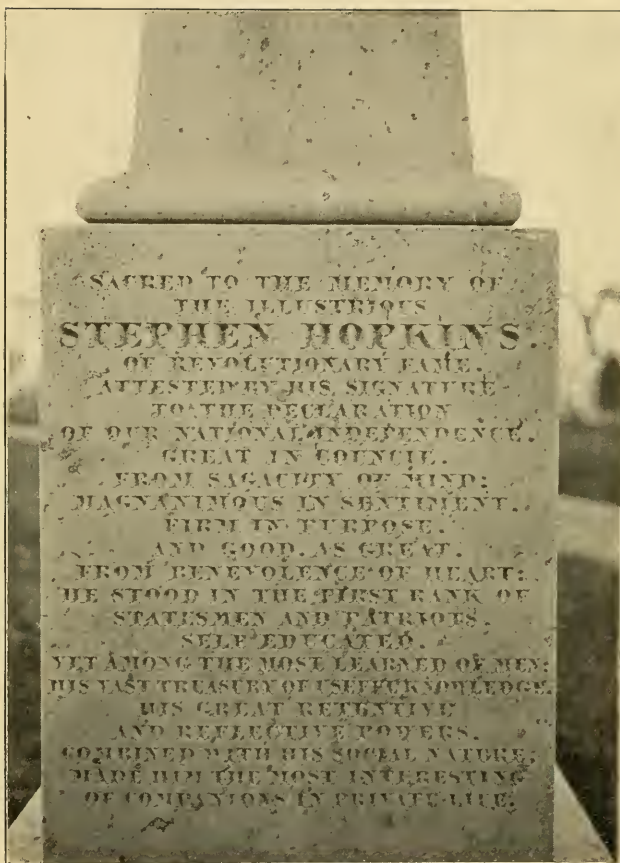 SACRED TO THE MEMORY OF
THE ILLUSTRIOUS
STEPHEN HOPKINS.
OF REVOLUTIONARY FAME,
ATTESTED BY HIS SIGNATURE
TO THE DECLARATION
OF OUR NATIONAL INDEPENDENCE.
GREAT IN COUNCIL,
FROM SAGACITY OF MIND;
MAGNANIMOUS IN SENTIMENT,
FIRM IN PURPOSE,
AND GOOD, AS GREAT,
FROM BENEVOLENCE OF HEART;
HE STOOD IN THE FIRST RANK OF
STATESMEN AND PATRIOTS.
SELF EDUCATED,
YET AMONG THE MOST LEARNED OF MEN;
HIS VAST TREASURY OF USEFUL KNOWLEDGE,
HIS GREAT RETENTIVE
AND REFLECTIVE POWERS,
COMBINED WITH HIS SOCIAL NATURE,
MADE HIM THE MOST INTERESTING
OF COMPANIONS IN PRIVATE LIFE.